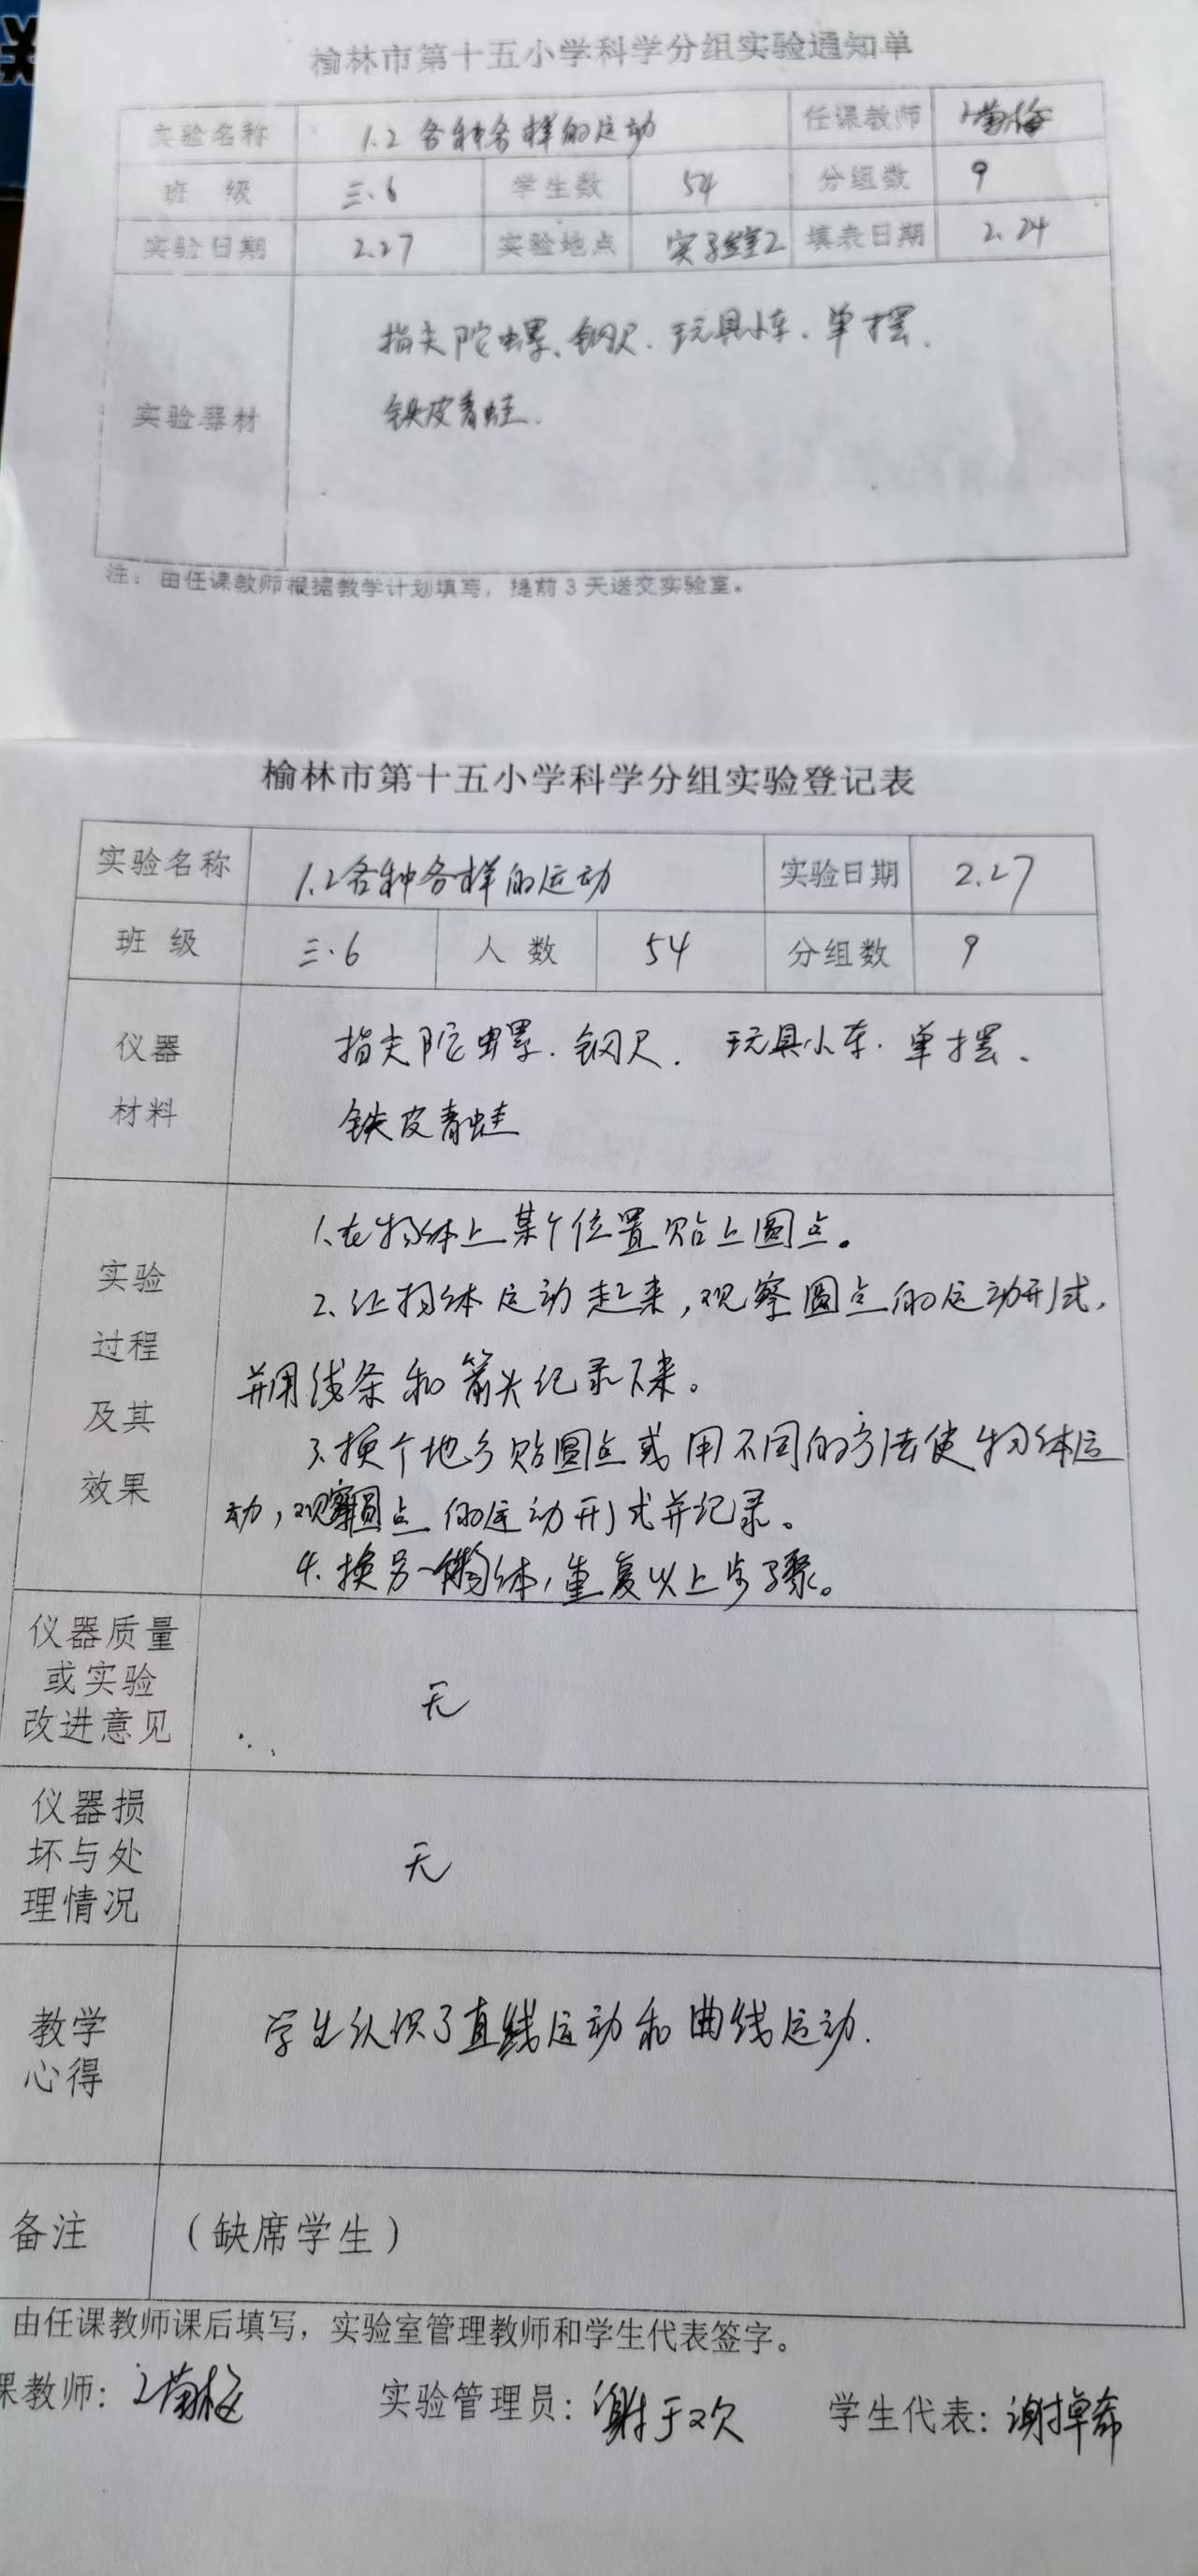 榆林市第十五小学科学分组实验通知单
实验名称 1.2 各种各样的运动 任课教师
班 级 三.6 学生数 54 分组数 9
实验日期 2.27 实验地点 实验室2 填表日期 2.24
实验器材
指尖陀螺、钢尺、玩具小车、单摆、
铁皮青蛙.
注：由任课教师根据教学计划填写，提前3天送交实验室。
榆林市第十五小学科学分组实验登记表
实验名称 1.2各种各样的运动 实验日期 2.27
班 级 三.6 人 数 54 分组数 9
仪器
材料
指尖陀螺、钢尺、玩具小车、单摆、
铁皮青蛙
实验
过程
及其
效果
1.在物体上某个位置贴上圆点。
2.让物体运动起来,观察圆点的运动形式,
并用线条和箭头纪录下来。
3.换个地方贴圆点或用不同的方法使物体运
动,观察圆点的运动形式并记录。
4.换另一个物体,重复以上步骤。
仪器质量
或实验
改进意见
无
仪器损
坏与处
理情况
无
教学
心得
学生认识了直线运动和曲线运动.
备注 （缺席学生）
由任课教师课后填写，实验室管理教师和学生代表签字。
课教师: 实验管理员: 学生代表: